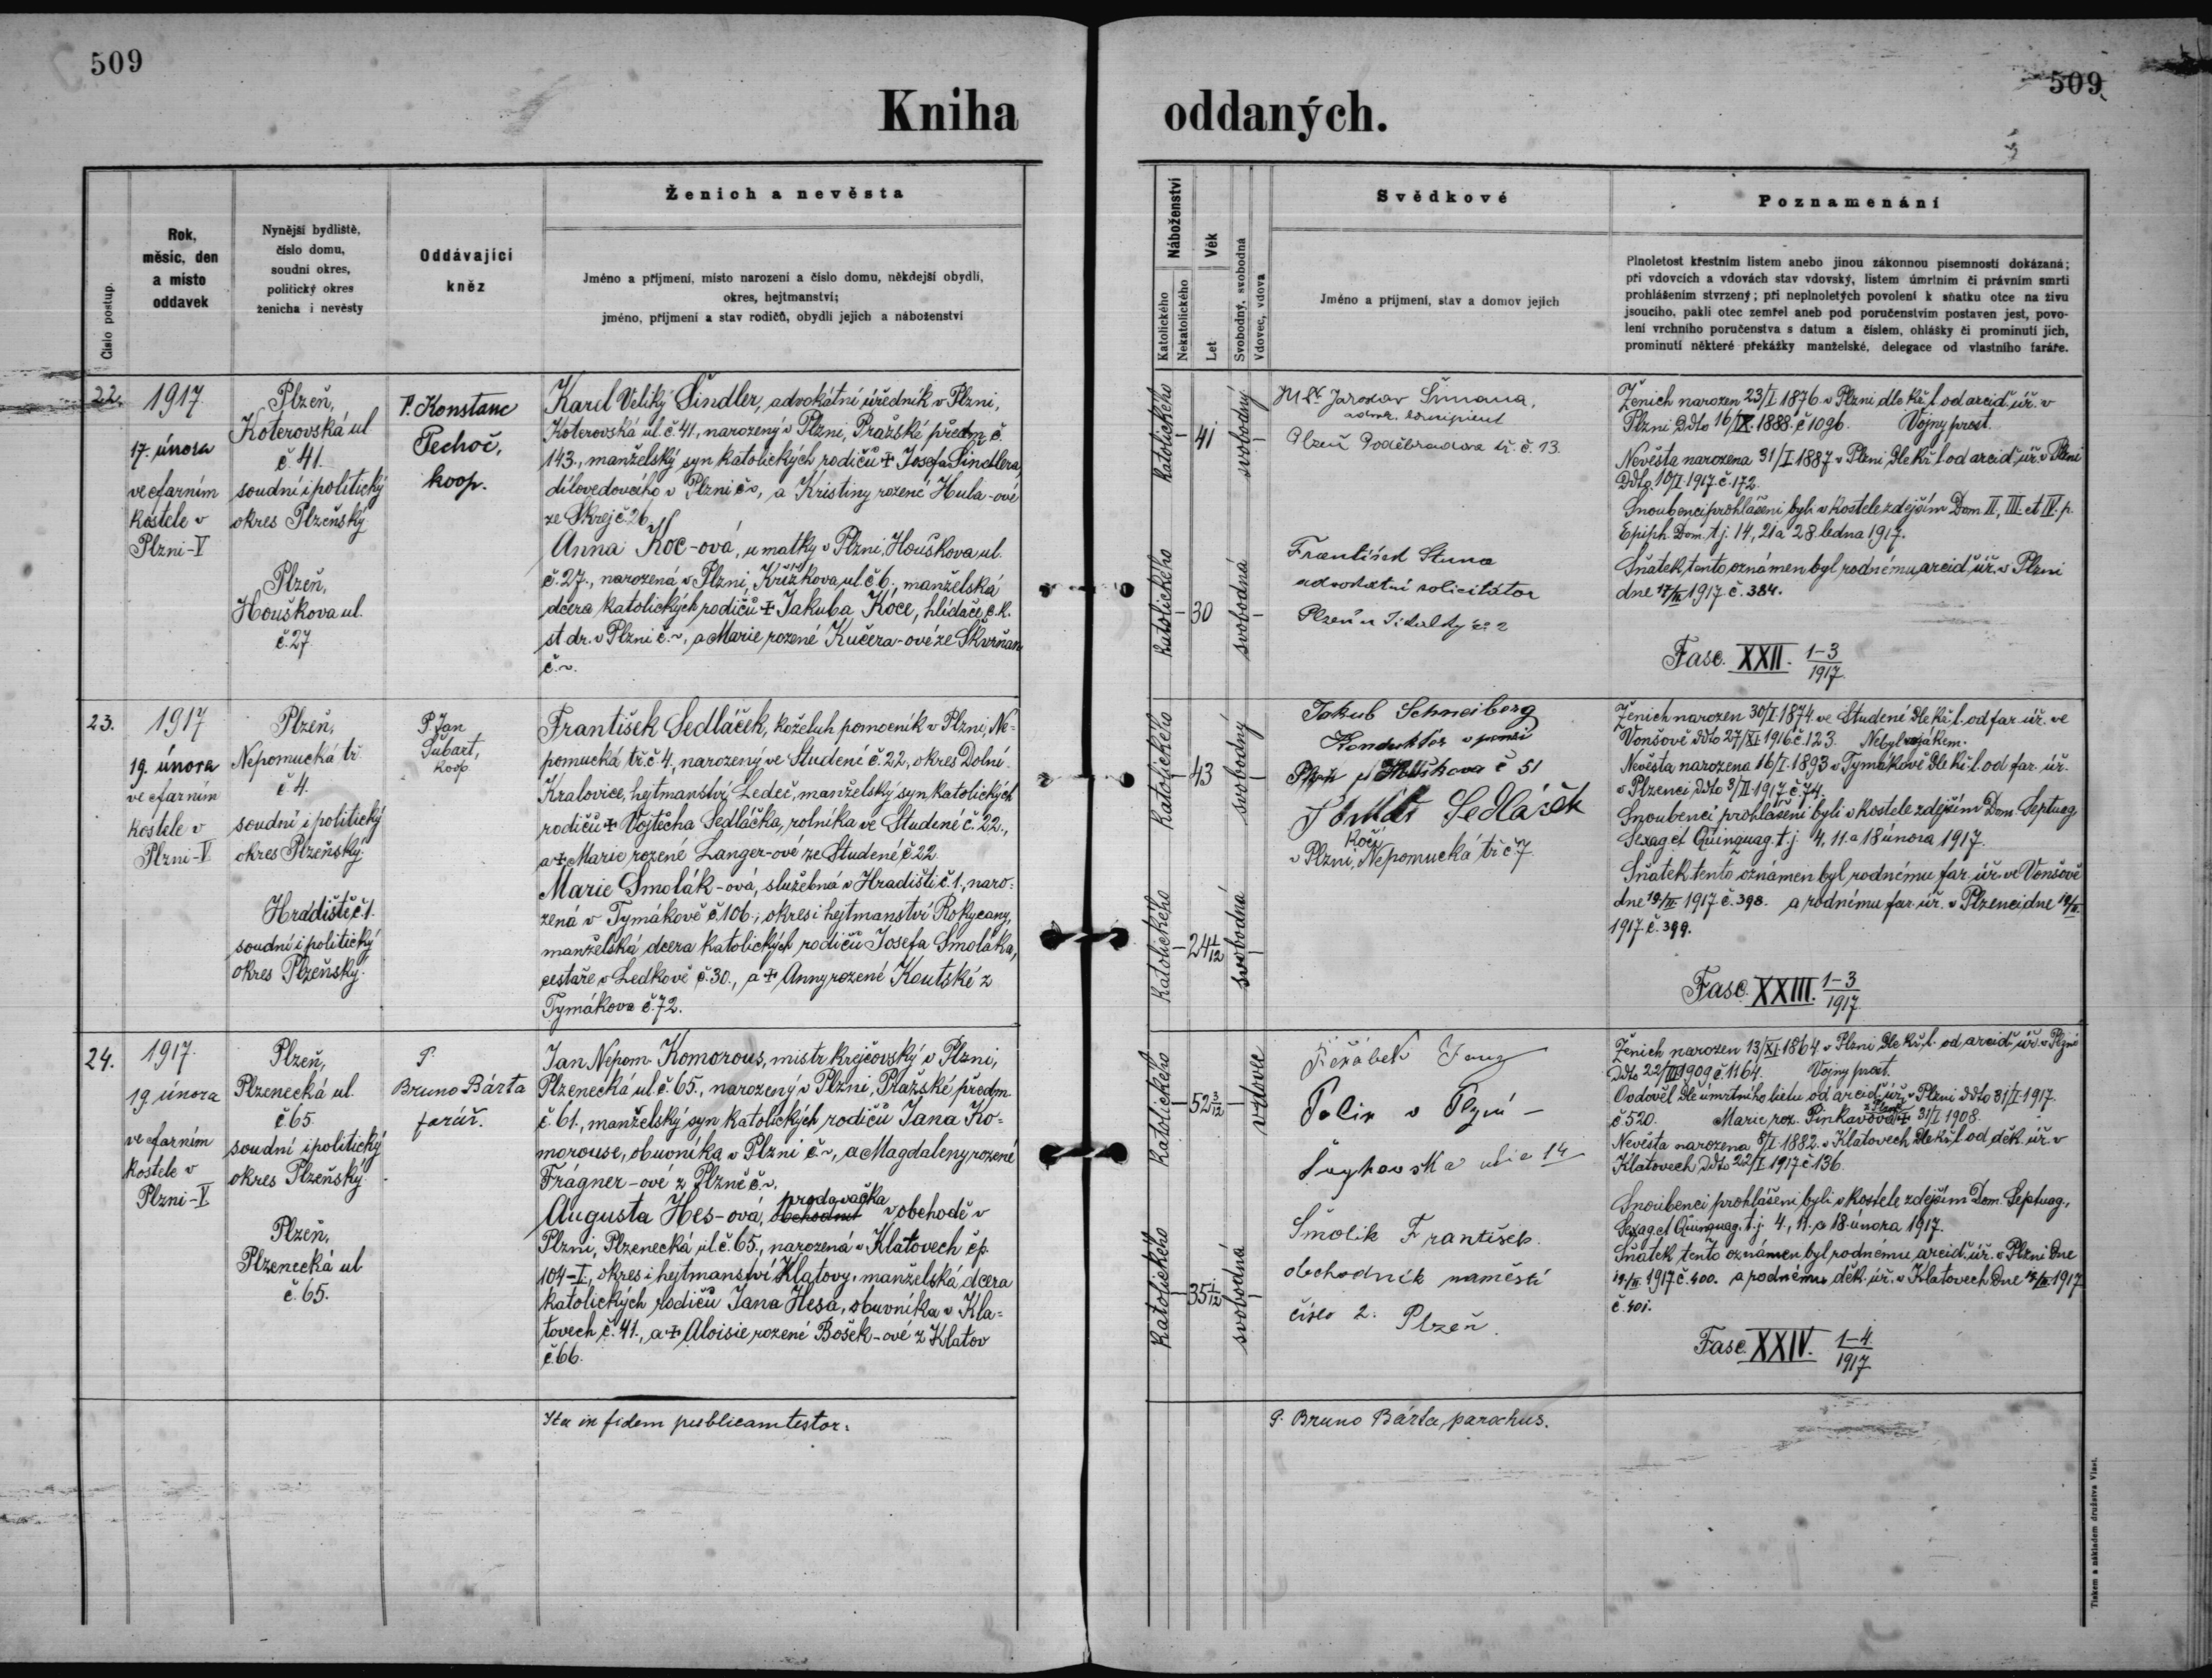 509
509
Kniha oddaných.
Číslo postup.
Rok,
měsíc, den
a místo
oddavek
Nynější bydliště,
číslo domu,
soudní okres,
politický okres
ženicha i nevěsty
Oddávající
kněz
Ženich a nevěsta
Jméno a příjmení, místo narození a číslo domu, někdejší obydlí,
okres, hejtmanství;
jméno, příjmení a stav rodičů, obydlí jejich a náboženství
Náboženství
Katolického
Nekatolického
Věk
Let
Svobodný, svobodná
Vdovec, vdova
Svědkové
Jméno a příjmení, stav a domov jejich
Poznamenání
Plnoletost křestním listem anebo jinou zákonnou písemností dokázaná;
při vdovcích a vdovách stav vdovský, listem úmrtním či právním smrti
prohlášením stvrzený; při neplnoletých povolení k sňatku otce na živu
jsoucího, pakli otec zemřel aneb pod poručenstvím postaven jest, povo-
lení vrchního poručenstva s datum a číslem, ohlášky či prominutí jich,
prominutí některé překážky manželské, delegace od vlastního faráře.
22.
1917.
17. února
ve farním
kostele v
Plzni-V
Plzeň,
Koterovská ul
č. 41.
soudní i politický
okres Plzeňský
Plzeň,
Houškova ul.
č. 27
P. Konstanc
Pechoč,
koop.
Karel Veliký Šindler, advokátní úředník v Plzni,
Koterovská ul. č. 41, narozený v Plzni, Pražské předm. č.
143., manželský syn katolických rodičů + Josefa Šindlera
dílovedoucího v Plzni č~, a Kristiny rozené Hula-ové
ze Skrej č 26.
Anna Koc-ová, u matky v Plzni, Houškova ul.
č. 27., narozená v Plzni, Křižíkova ul. č 6., manželská
dcera katolických rodičů + Jakuba Koce, hlídače c. k.
st. dr. v Plzni č.~, a Marie rozené Kučera-ové ze Skvrňan
č.~.
katolického
41
svobodný
katolického
30
svobodná
Jaroslav Šimana,
Plzeň Poděbradova tř. č. 13.
František Stuna
advokátní solicitátor
Plzeň
Ženich narozen 23/I 1876 v Plzni dle kř. l. od arcid. úř. v
Plzni ddto 16/IX. 1888. č 1096. Vojny prost.
Nevěsta narozena 31/I 1887 v Plzni dle kř. l. od arcid. úř. v Plzni
ddto 10/I. 1917 č. 172.
Snoubenci prohlášeni byli v kostele zdejším Dom. II, III. et IV. p.
Epiph. Dom. t. j. 14, 21 a 28. ledna 1917.
Sňatek tento oznámen byl rodnému arcid. úř. v Plzni
dne 17/II 1917 č. 384.
Fasc. XXII. 1-3/1917
23.
1917
19. února
ve farním
kostele v
Plzni-V
Plzeň,
Nepomucká tř.
č. 4.
soudní i politický
okres Plzeňský.
Hradiště č. 1.
soudní i politický
okres Plzeňský.
P. Jan
Šubart,
koop
František Sedláček, koželuh pomocník v Plzni, Ne-
pomucká tř. č 4, narozený ve Studené č. 22, okres Dolní-
Kralovice, hejtmanství Ledeč, manželský syn katolických
rodičů + Vojtěcha Sedláčka, rolníka ve Studené č. 22.,
a + Marie rozené Langer-ové ze Studené č. 22
Marie Smolák-ová, služebná v Hradišti č. 1., naro-
zená v Tymákově č. 106., okres i hejtmanství Rokycany,
manželská dcera katolických rodičů Josefa Smoláka,
cestáře v Ledkově č. 30., a + Anny rozené Koutské z
Tymákova č. 72.
katolického
43
svobodný
katolického
24 1/12
svobodná
Jakub Schneiberg
Kondukter v pensi
č 51
Sedláček
kočí
v Plzni, Nepomucká tř č 7
Ženich narozen 30/I 1874. ve Studené dle kř. l. od far. úř. ve
Vonšově ddto 27/XI. 1916 č. 123. Nebyl vojákem.
Nevěsta narozena 16/I. 1893 v Tymákově dle kř. l. od far. úř.
v Plzenci ddto 3/II. 1917 č. 74.
Snoubenci prohlášeni byli v kostele zdejším Dom. Septuag.
Sexag. et Quinquag. t. j. 4, 11. a 18 února 1917.
Sňatek tento oznámen byl rodnému far. úř. ve Vonšově
dne 19/II 1917 č. 398. a rodnému far. úř. v Plzenci dne 19/II.
1917 č. 399.
Fasc. XXIII. 1-3/1917
24.
1917.
19. února
ve farním
kostele v
Plzni-V
Plzeň,
Plzenecká ul.
č. 65
soudní i politický
okres Plzeňský
Plzeň,
Plzenecká ul
č. 65.
P.
Bruno Bárta
farář.
Jan Nepom. Komorous, mistr krejčovský v Plzni,
Plzenecká ul. č. 65., narozený v Plzni, Pražské předm.
č. 61., manželský syn katolických rodičů Jana Ko-
morouse, obuvníka v Plzni č.~, a Magdaleny rozené
Frágner-ové z Plzně č.~.
Augusta Hes-ová, prodavačka v obchodě v
Plzni, Plzenecká ul. č. 65., narozená v Klatovech čp.
104-I., okres i hejtmanství Klatovy, manželská dcera
katolických rodičů Jana Hesa, obuvníka v Kla-
tovech č. 41., a + Aloisie rozené Bošek-ové z Klatov
č. 66.
katolického
52 3/12
vdovec
katolického
35 1/12
svobodná
Jeřábek
v Plzni
14
Smolik František
obchodník naměstí
číslo 2. Plzeň.
Ženich narozen 13/XI. 1864 v Plzni dle kř. l. od arcid. úř. v Plzni
ddto 22/VII 1909 č. 1164. Vojny prost.
Ovdověl dle úmrtního listu od arcid. úř. v Plzni ddto 31/I. 1917.
č 520. Marie roz. Pinkasová z Plzně + 31/I. 1908.
Nevěsta narozena 8/I 1882. v Klatovech dle kř. l. od děk. úř. v
Klatovech ddto 22/I 1917 č 136.
Snoubenci prohlášeni byli v kostele zdejším Dom. Septuag.,
Sexag. et Quinquag. t. j. 4, 11. a 18. února 1917.
Sňatek tento oznámen byl rodnému arcid. úř. v Plzni dne
19/II 1917 č. 400. a rodnému děk. úř. v Klatovech dne 19/II 1917
č. 401.
Fasc. XXIV. 1-4/1917
Ita in fidem publicam testor:
P. Bruno Bárta, parochus.
Tiskem a nákladem družstva Vlast.